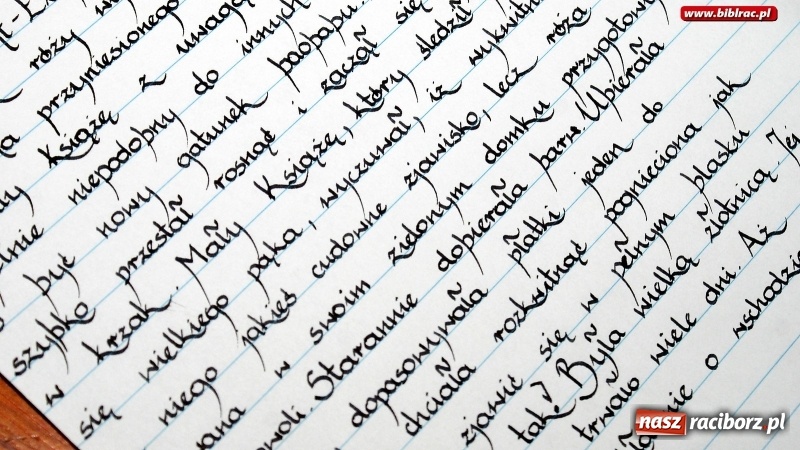 www.bibirac.pl
róży
przyniesionego
Książę z uwagą
niepodobny do innych
być nowy gatunek baobabu.
szybko przestał rosnąć i zaczął się
w krzak. Mały Książę, który śledził
się wielkiego pąka, wyczuwał, iż wykwitn
niego jakieś cudowne zjawisko, lecz róża
w swoim zielonym domku przygotow
Starannie dobierała barw. Ubierała
dopasowywała płatki jeden do
chciała rozkwitnąć pognieciona jak
zjawić się w pełnym blasku
tak! Była wielką zlotnicą. Jej
trwało wiele dni. Aż
o wschodzie
nasz raciborz.pl